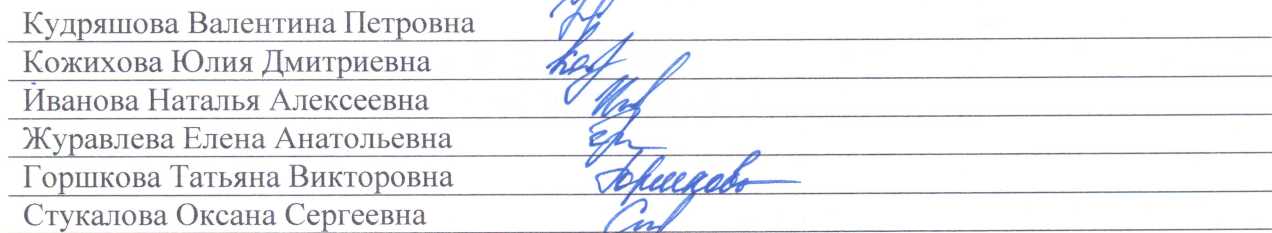 Кудряшова Валентина Петровна
Кожихова Юлия Дмитриевна
Иванова Наталья Алексеевна
Журавлева Елена Анатольевна
Горшкова Татьяна Викторовна
Стукалова Оксана Сергеевна